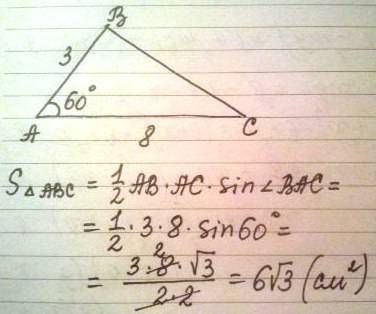 B
3
60°
A
8
C
S△ABC = 1/2 AB · AC · sin∠BAC =
= 1/2 · 3 · 8 · sin60° =
= 3 · 8 · √3 / 2 · 2 = 6√3 (см²)
2